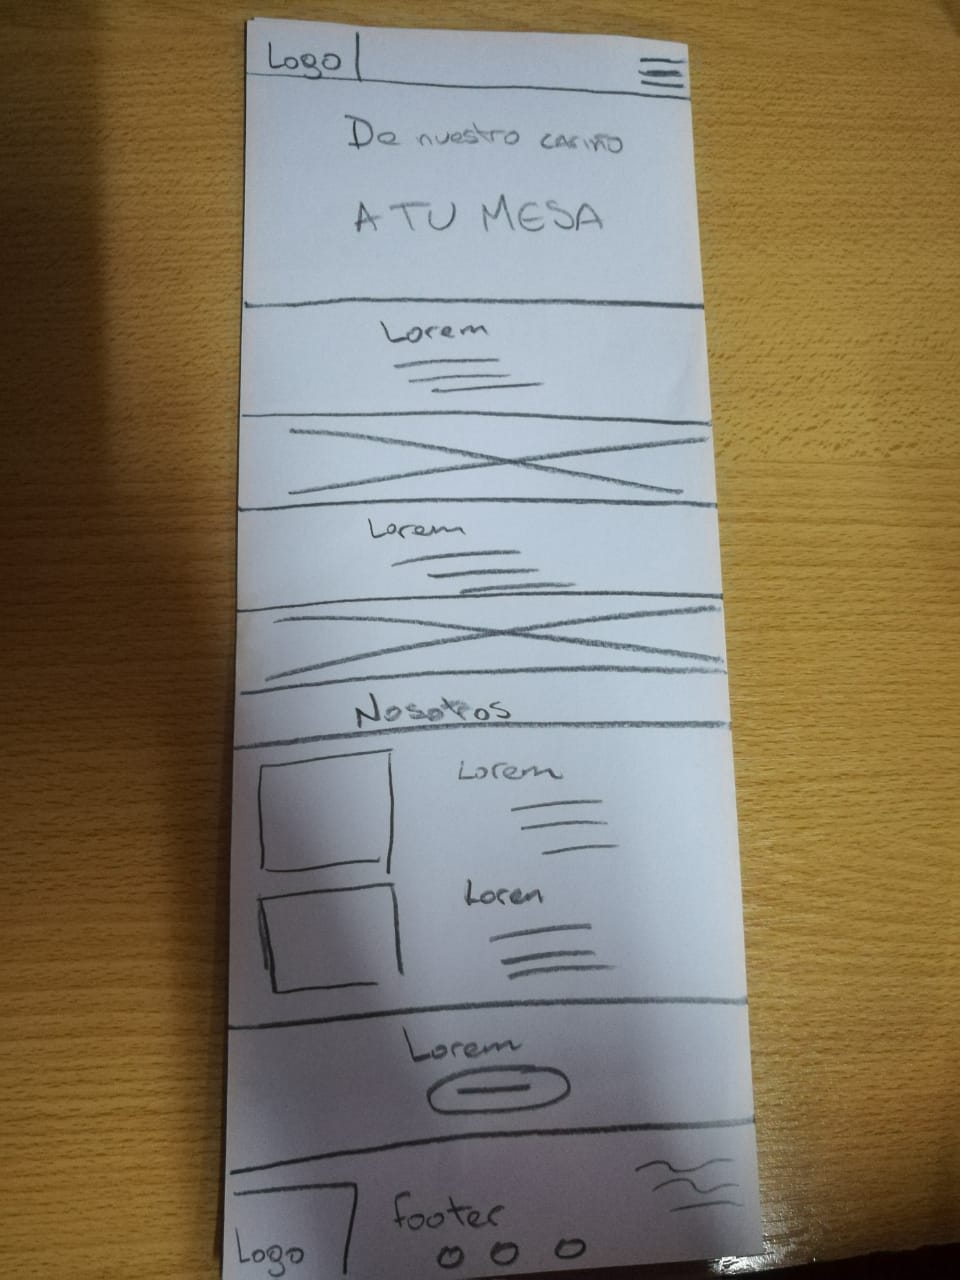 Logo
De nuestro cariño
A TU MESA
Lorem
Lorem
Nosotros
Lorem
Loren
Lorem
footer
Logo